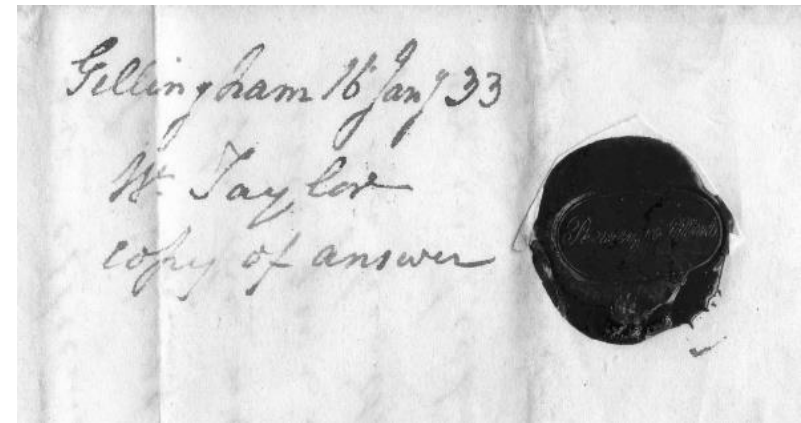 Gillingham 16 Jany 33
Wm Taylor
copy of answer